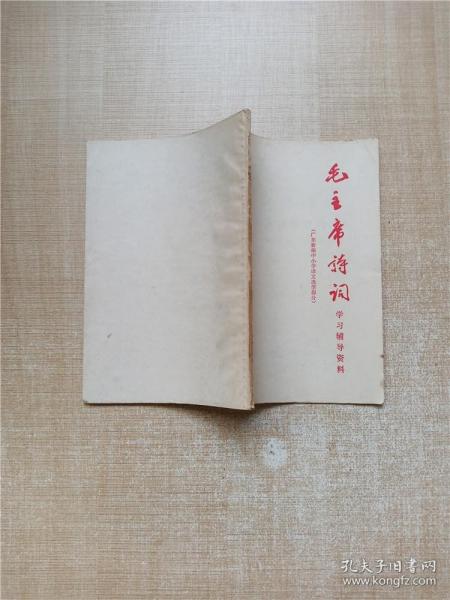 毛主席詩词
学习辅导资料
(广东省编中小学语文选用部分)
孔夫子旧书网
www.kongfz.com